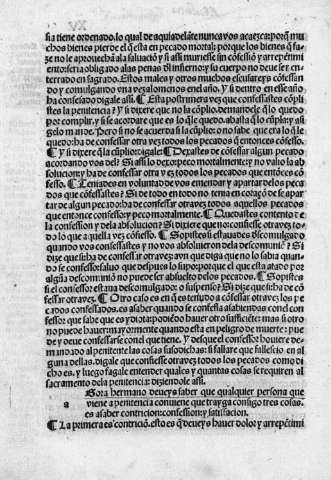 sia tiene ordenado. lo qual de aqui adelãte nunca vos acaezca: porq̃ mu
chos bienes pierde el q̃ esta en pecado mortal: porque los bienes q̃ fa
ze no le aprovechã a la saluaciõ y si assi muriesse sin cõfessiõ y arrepẽtimi
ento: seria obligado a las penas d'l infierno: y su cuerpo no deue ser en
terrado en sagrado. Estos males y otros muchos escusareys cõfessan
do y comulgando vna vez a lomenos en el año. Y si dentro en esse año
ha confessado digale assi. ¶ Esta postrimera vez que confessastes cõplis
tes la penitencia? Y si dixere que no la cũplio. demandele q̃ lo quedo
por complir. y si se acordare que es lo q̃ le quedo. abasta q̃ lo cũpla: y assi
gelo mãde. Pero si no se acuerda si la cũplio: o no sabe que era lo q̃ le
quedo: ha de confessar otra vez todos los pecados que entonces cõfesso.
¶ Y si dixere q̃ la cũplio: digale ¶ Dexastes de cõfessar algun pecado
acordando vos del? Si assi lo dexo: peco mortalmente: y no valio la ab
solucion: y ha de confessar otra vez todos los pecados que entõces cõ
fesso. ¶ Teniades en voluntad de vos emendar y apartar de los peca
dos que cõfessastes? Si de todo en todo no tenia en coraçõ de se apar
tar de algun pecado: ha de confessar otravez todos aquellos pecados
que entonce confesso: y peco mortalmente. ¶ Quedastes contento d'
la confession y de la absolucion? Si dixiere que no: confiesse otravez to
do lo que aquella vez cõfesso. ¶ Sopistes si estauades descomulgado
quando vos confessastes y no vos absoluieron de la descomuniõ? Si
dize que si: ha de confessar otravez: avn que diga que no lo sabia quan
do se confesso: saluo que despues lo supo: porque el que esta atado por
algũa descomuniõ no puede ser absuelto de los pecados. ¶ Sopistes
si el confessor estaua descomulgado: o suspenso? Si dize que si: ha de cõ
fessar otravez. ¶ Otro caso es en q̃ es tenudo a cõfessar otravez los pe
cados confessados. es a saber quando se confiessa a sabiendas con el con
fessor que sabe que es ydiota: podiẽdo hauer otro sufficiẽte: mas si otro
no puede hauer: mayormente quando esta en peligro de muerte: pue
de y deue confessarse con el que tiene. Y desque el confessor houiere de
mandado al penitente las cosas susodichas: si fallare que fallescio en al
guna dellas. digale que confiesse otravez todos los pecados como di
cho es. y luego fagale entender quales y quantas cosas se requieren al
sacramento de la penitencia: diziendole assi.
Gora hermano deueys saber que qualquier persona que
a viene a penitencia conuiene que trayga consigo tres cosas.
es a saber contricion: confession: y satisfacion.
¶ La primera es contriciõ. esto es q̃ deueys hauer dolor y arrepẽtimi